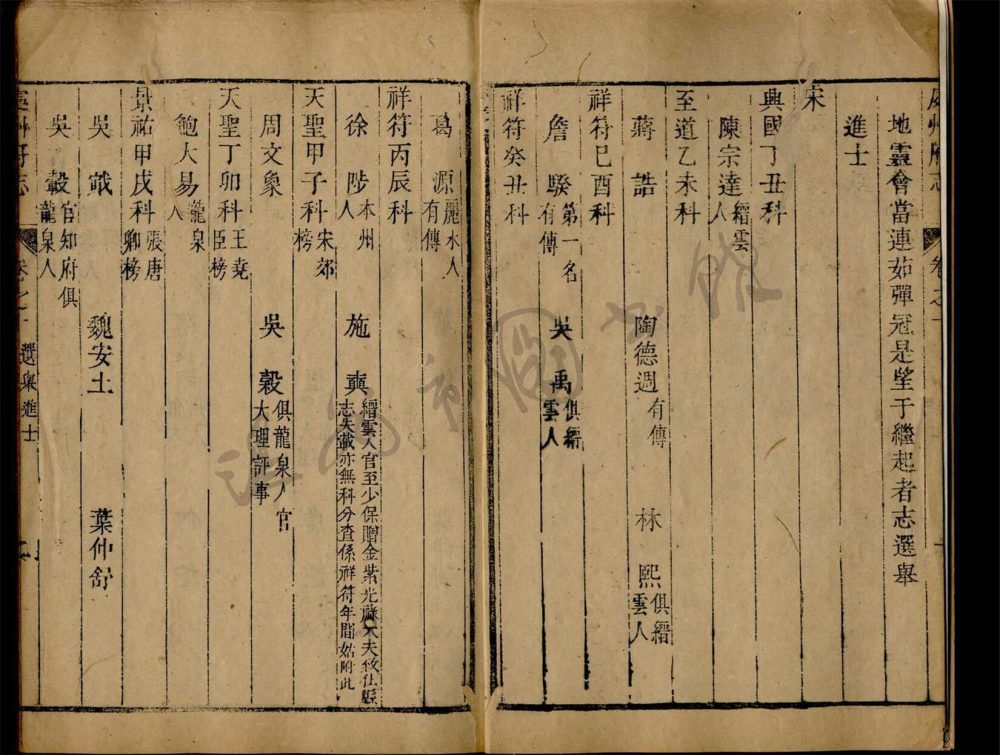 處州府志
卷之十
地靈會當連茹彈冠是望于繼起者志選舉
進士
宋
興國丁丑科
陳宗達縉雲人
至道乙未科
蔣誥 陶德週有傳 林熙俱縉雲人
祥符己酉科
詹騤第一名有傳 吳禹俱縉雲人
祥符癸丑科
葛源麗水人有傳
祥符丙辰科
徐陟本州人 施奭縉雲人官至少保贈金紫光祿大夫致仕縣志失載亦無科分查係祥符年間姑附此
天聖甲子科宋郊榜
周文象 吳穀俱龍泉人官大理評事
天聖丁卯科王堯臣榜
鮑大易龍泉人
景祐甲戌科張唐卿榜
吳戩 魏安土 葉仲舒
吳轂官知府俱龍泉人
處州府志
卷之十 選舉進士